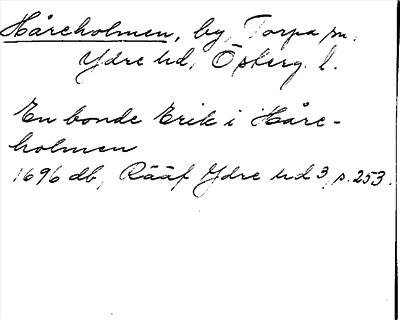 Håreholmen, by, Torpa sn,
Ydre hd, Österg. l.
En bonde Erik i Håre-
holmen
1696 db, Rääf Ydre hd 3, s. 253.